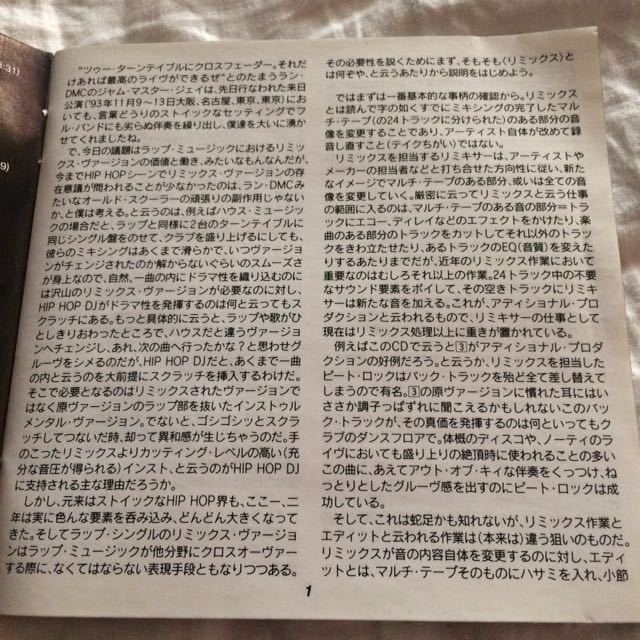 :31)
9)
"ツゥー・ターンテイブルにクロスフェーダー。それだ
けあれば最高のライヴができるぜ"とのたまうラン・
DMCのジャム・マスター・ジェイは、先日行なわれた来日
公演('93年11月9〜13日大阪、名古屋、東京、東京)にお
いても、言葉どうりのストイックなセッティングでフ
ル・バンドにも劣らぬ伴奏を繰り出し、僕達を大いに湧か
せてくれましたね。
で、今日の議題はラップ・ミュージックにおけるリミッ
クス・ヴァージョンの価値と働き、みたいなもんなんだが、
今までHIP HOPシーンでリミックス・ヴァージョンの存
在意義が問われることが少なかったのは、ラン・DMCみ
たいなオールド・スクーラーの頑張りの副作用じゃない
か、と僕は考える。と云うのは、例えばハウス・ミュージッ
クの場合だと、ラップと同様に2台のターンテイブルに
同じシングル盤をのせて、クラブを盛り上げるにしても、
彼らのミキシングはあくまで滑らかで、いつヴァージョ
ンがチェンジされたのか解からないぐらいのスムーズさ
が身上なので、自然、一曲の内にドラマ性を織り込むのに
は沢山のリミックス・ヴァージョンが必要なのに対し、
HIP HOP DJがドラマ性を発揮するのは何と云ってもス
クラッチにある。もっと具体的に云うと、ラップや歌がひ
としきりおわったところで、ハウスだと違うヴァージョ
ンへチェンジし、あれ、次の曲へ行ったかな?と思わせグ
ルーヴをシメるのだが、HIP HOP DJだと、あくまで一曲
の内と云うのを大前提にスクラッチを挿入するわけだ。
そこで必要となるのはリミックスされたヴァージョンで
はなく原ヴァージョンのラップ部を抜いたインストゥル
メンタル・ヴァージョン。でないと、ゴシゴシッとスクラ
ッチしてつないだ時、却って異和感が生じちゃうのだ。手
のこったリミックスよりカッティング・レベルの高い(充
分な音圧が得られる)インスト、と云うのがHIP HOP DJ
に支持される主な理由だろうか。
しかし、元来はストイックなHIP HOP界も、ここ一、二
年は実に色んな要素を呑み込み、どんどん大きくなって
きた。そしてラップ・シングルのリミックス・ヴァージョ
ンはラップ・ミュージックが他分野にクロスオーヴァー
する際に、なくてはならない表現手段ともなりつつある。
その必要性を説くためにまず、そもそも〈リミックス〉と
は何ぞや、と云うあたりから説明をはじめよう。
ではまずは一番基本的な事柄の確認から。リミックス
とは読んで字の如くすでにミキシングの完了したマル
チ・テープ(の24トラックに分けられた)のある部分の音
像を変更することであり、アーティスト自体が改めて録
音し直すこと(テイクちがい)ではない。
リミックスを担当するリミキサーは、アーティストや
メーカーの担当者などと打ち合せた方向性に従い、新た
なイメージでマルチ・テープのある部分、或いは全ての音
像を変更していく。厳密に云ってリミックスと云う仕事
の範囲に入るのは、マルチ・テープのある音の部分=トラ
ックにエコー、ディレイなどのエフェクトをかけたり、楽
曲のある部分のトラックをカットしてそれ以外のトラッ
クをきわ立たせたり、あるトラックのEQ(音質)を変えた
りするあたりまでだが、近年のリミックス作業において
重要なのはむしろそれ以上の作業。24トラック中の不要
なサウンド要素をポイして、その空きトラックにリミキ
サーは新たな音を加える。これが、アディショナル・プロ
ダクションと云われるもので、リミキサーの仕事として
現在はリミックス処理以上に重きが置かれている。
例えばこのCDで云うと[3]がアディショナル・プロダ
クションの好例だろう。と云うか、リミックスを担当した
ピート・ロックはバック・トラックを殆と全て差し替えて
しまうので有名。[3]の原ヴァージョンに慣れた耳にはい
ささか調子っぱずれに聞こえるかもしれないこのバッ
ク・トラックが、その真価を発揮するのは何といってもク
ラブのダンスフロアで。体概のディスコや、ノーティのラ
イヴにおいても盛り上りの絶頂時に使われることの多い
この曲に、あえてアウト・オブ・キィな伴奏をくっつけ、ね
っとりとしたグルーヴ感を出すのにピート・ロックは成
功している。
そして、これは蛇足かも知れないが、リミックス作業と
エディットと云われる作業は(本来は)違う狙いのものだ。
リミックスが音の内容自体を変更するのに対し、エディ
ットとは、マルチ・テープそのものにハサミを入れ、小節
1